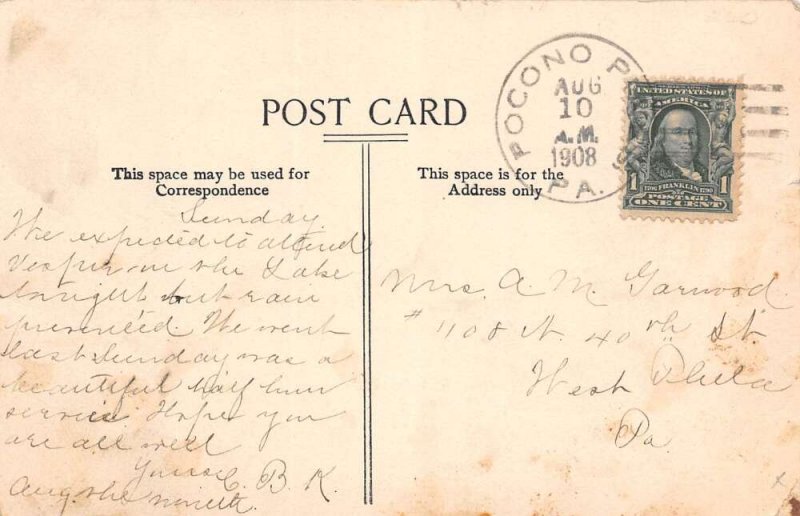 POST CARD
This space may be used for
Correspondence
This space is for the
Address only
POCONO P
AUG
10
A.M.
1908
PA.
UNITED STATES OF
AMERICA
1706 FRANKLIN 1790
POSTAGE
1 ONE CENT 1
Sunday
We expected to attend
Vesper on the Lake
tonight but rain
prevented. We went
last Sunday was a
beautiful half hour
service. Hope you
are all well
Yours C. B. K.
Aug. the nineth.
Mrs. A. M. Garwood.
# 1108 N. 40th St.
West Phila
Pa.
x